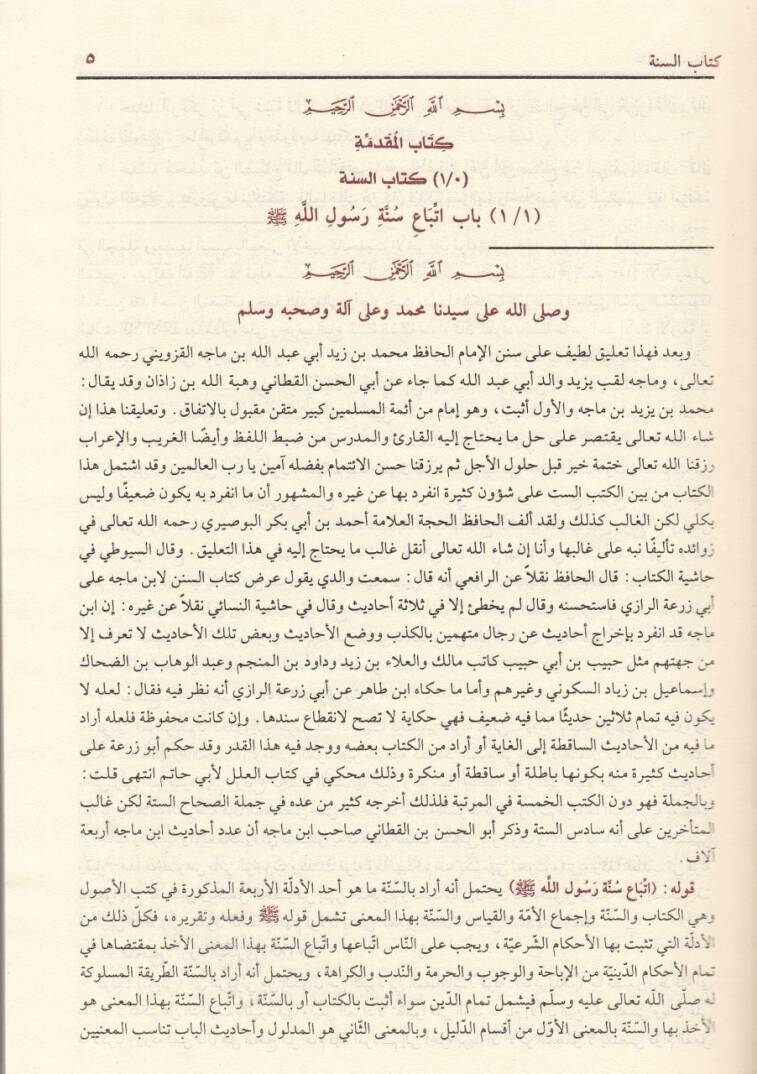 كتاب السنة ٥
بِسْمِ اللَّهِ الرَّحْمَنِ الرَّحِيمِ
كِتَاب المُقَدمَةِ
(١/٠) كتاب السنة
(١/١) باب اتِّبَاعِ سُنَّةِ رَسُولِ اللَّهِ ﷺ
بِسْمِ اللَّهِ الرَّحْمَنِ الرَّحِيمِ
وصلى الله على سيدنا محمد وعلى آلة وصحبه وسلم
وبعد فهذا تعليق لطيف على سنن الإمام الحافظ محمد بن زيد أبي عبد الله بن ماجه القزويني رحمه الله
تعالى، وماجه لقب يزيد والد أبي عبد الله كما جاء عن أبي الحسن القطاني وهبة الله بن زاذان وقد يقال:
محمد بن يزيد بن ماجه والأول أثبت، وهو إمام من أئمة المسلمين كبير متقن مقبول بالاتفاق. وتعليقنا هذا إن
شاء الله تعالى يقتصر على حل ما يحتاج إليه القارئ والمدرس من ضبط اللفظ وأيضًا الغريب والإعراب
رزقنا الله تعالى ختمة خير قبل حلول الأجل ثم يرزقنا حسن الائتمام بفضله آمين يا رب العالمين وقد اشتمل هذا
الكتاب من بين الكتب الست على شؤون كثيرة انفرد بها عن غيره والمشهور أن ما انفرد به يكون ضعيفًا وليس
بكلي لكن الغالب كذلك ولقد ألف الحافظ الحجة العلامة أحمد بن أبي بكر البوصيري رحمه الله تعالى في
زوائده تأليفًا نبه على غالبها وأنا إن شاء الله تعالى أنقل غالب ما يحتاج إليه في هذا التعليق. وقال السيوطي في
حاشية الكتاب: قال الحافظ نقلاً عن الرافعي أنه قال: سمعت والدي يقول عرض كتاب السنن لابن ماجه على
أبي زرعة الرازي فاستحسنه وقال لم يخطئ إلا في ثلاثة أحاديث وقال في حاشية النسائي نقلاً عن غيره: إن ابن
ماجه قد انفرد بإخراج أحاديث عن رجال متهمين بالكذب ووضع الأحاديث وبعض تلك الأحاديث لا تعرف إلا
من جهتهم مثل حبيب بن أبي حبيب كاتب مالك والعلاء بن زيد وداود بن المنجم وعبد الوهاب بن الضحاك
وإسماعيل بن زياد السكوني وغيرهم وأما ما حكاه ابن طاهر عن أبي زرعة الرازي أنه نظر فيه فقال: لعله لا
يكون فيه تمام ثلاثين حديثًا مما فيه ضعيف فهي حكاية لا تصح لانقطاع سندها. وإن كانت محفوظة فلعله أراد
ما فيه من الأحاديث الساقطة إلى الغاية أو أراد من الكتاب بعضه ووجد فيه هذا القدر وقد حكم أبو زرعة على
أحاديث كثيرة منه بكونها باطلة أو ساقطة أو منكرة وذلك محكي في كتاب العلل لأبي حاتم انتهى قلت:
وبالجملة فهو دون الكتب الخمسة في المرتبة فلذلك أخرجه كثير من عده في جملة الصحاح الستة لكن غالب
المتأخرين على أنه سادس الستة وذكر أبو الحسن بن القطاني صاحب ابن ماجه أن عدد أحاديث ابن ماجه أربعة
آلاف.
قوله: (اتِّباع سُنَّة رَسُول اللَّه ﷺ) يحتمل أنه أراد بالسّنة ما هو أحد الأدلّة الأربعة المذكورة في كتب الأصول
وهي الكتاب والسّنّة وإجماع الأمّة والقياس والسّنّة بهذا المعنى تشمل قوله ﷺ وفعله وتقريره، فكلّ ذلك من
الأدلّة التي تثبت بها الأحكام الشّرعيّة، ويجب على النّاس اتّباعها واتّباع السّنّة بهذا المعنى الأخذ بمقتضاها في
تمام الأحكام الدّينيّة من الإباحة والوجوب والحرمة والنّدب والكراهة، ويحتمل أنه أراد بالسّنّة الطّريقة المسلوكة
له صلّى اللّه تعالى عليه وسلّم فيشمل تمام الدّين سواء أثبت بالكتاب أو بالسّنّة، واتّباع السّنّة بهذا المعنى هو
الأخذ بها والسّنّة بالمعنى الأوّل من أقسام الدّليل، وبالمعنى الثّاني هو المدلول وأحاديث الباب تناسب المعنيين